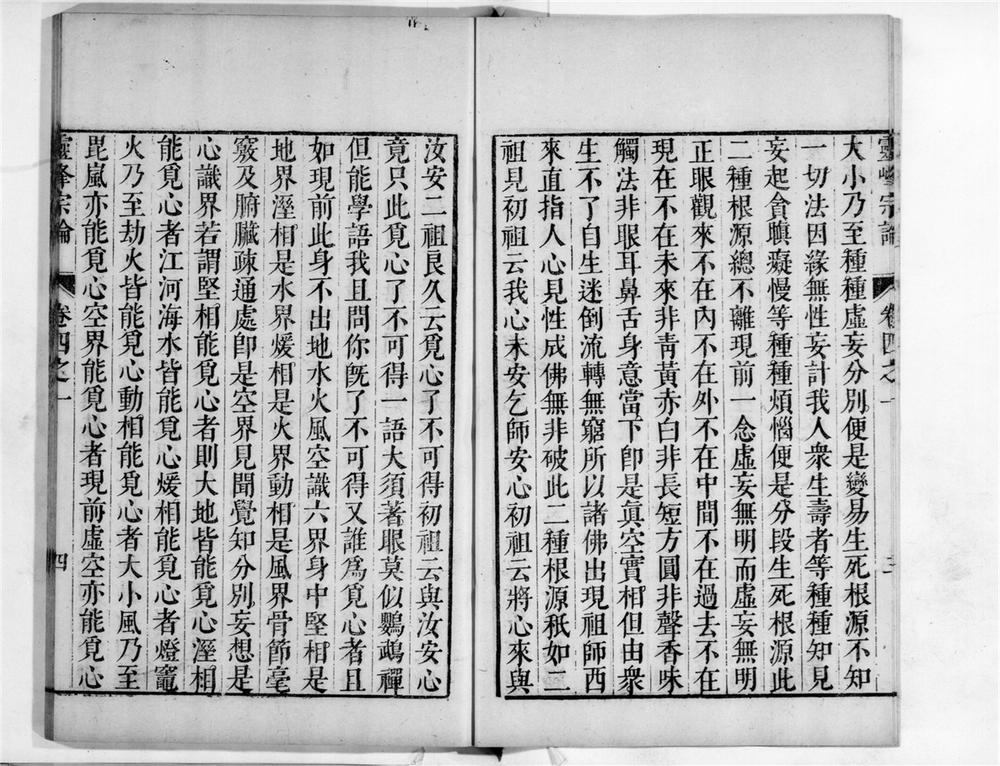 靈峰宗論 卷四之一 三
大小乃至種種虛妄分別便是變易生死根源不知
一切法因緣無性妄計我人衆生壽者等種種知見
妄起貪瞋癡慢等種種煩惱便是分段生死根源此
二種根源總不離現前一念虛妄無明而虛妄無明
正眼觀來不在內不在外不在中間不在過去不在
現在不在未來非靑黃赤白非長短方圓非聲香味
觸法非眼耳鼻舌身意當下卽是眞空實相但由衆
生不了自生迷倒流轉無窮所以諸佛出現祖師西
來直指人心見性成佛無非破此二種根源秖如二
祖見初祖云我心未安乞師安心初祖云將心來與
汝安二祖良久云覓心了不可得初祖云與汝安心
竟只此覓心了不可得一語大須著眼莫似鸚鵡禪
但能學語我且問你旣了不可得又誰爲覓心者且
如現前此身不出地水火風空識六界身中堅相是
地界溼相是水界煖相是火界動相是風界骨節毫
竅及腑臟疎通處卽是空界見聞覺知分別妄想是
心識界若謂堅相能覓心者則大地皆能覓心溼相
能覓心者江河海水皆能覓心煖相能覓心者燈竈
火乃至劫火皆能覓心動相能覓心者大小風乃至
毘嵐亦能覓心空界能覓心者現前虛空亦能覓心
靈峰宗論 卷四之一 四